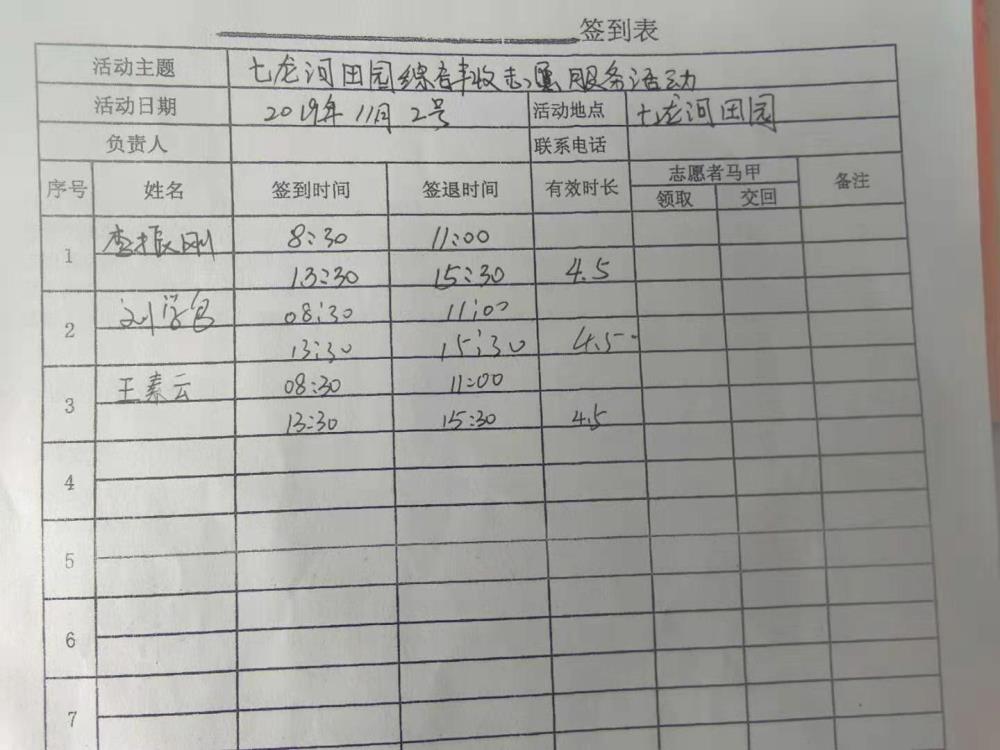 签到表
活动主题 七龙河田园综合丰收志愿服务活动
活动日期 2019年11月2号 活动地点 七龙河田园
负责人 联系电话
序号 姓名 签到时间 签退时间 有效时长 志愿者马甲 备注
领取 交回
1 查振刚 8:30 11:00
13:30 15:30 4.5
2 刘学 08:30 11:00
13:30 15:30 4.5
3 王素云 08:30 11:00
13:30 15:30 4.5
4
5
6
7